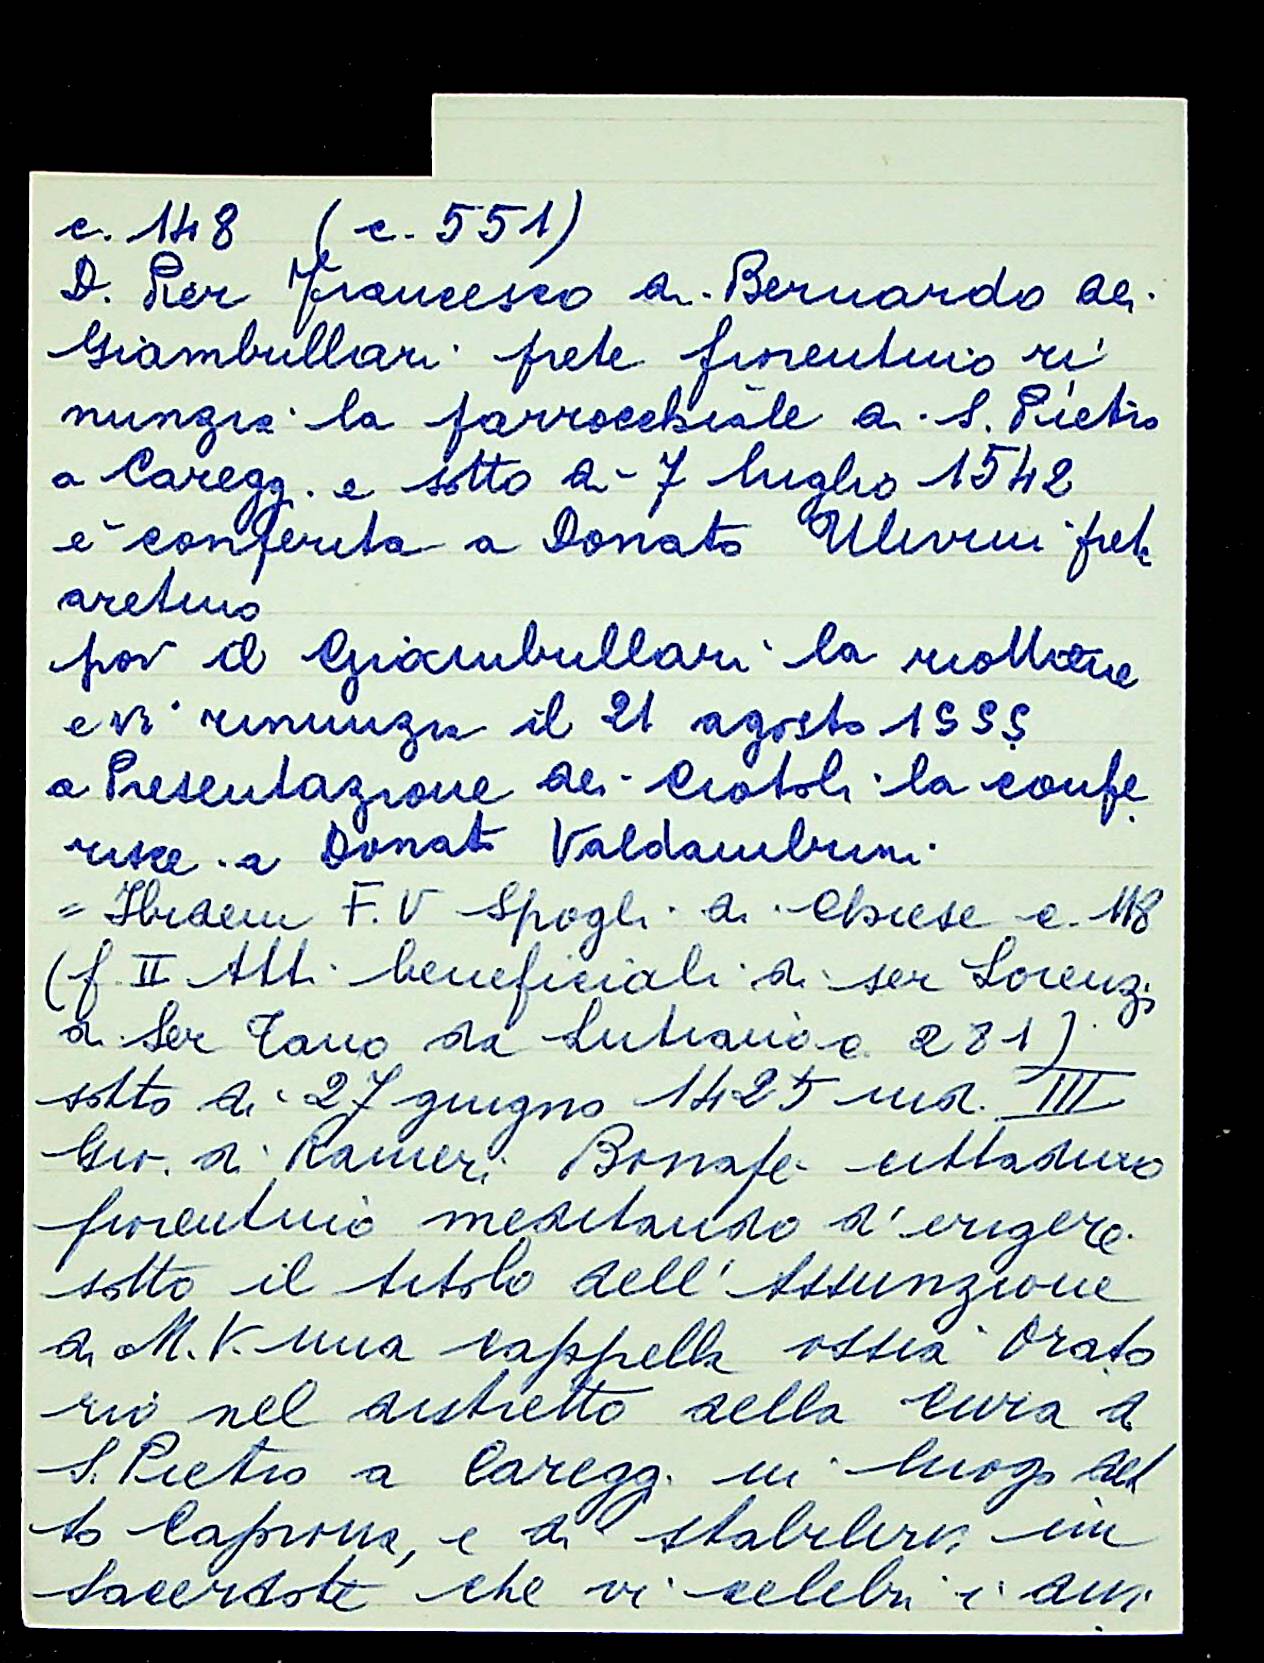 c. 148 (c. 551)
D. Pier Francesco di Bernardo dei
Giambullari prete fiorentino ri
nunzia la parrocchiale di S. Pietro
a Careggi e sotto di 7 luglio 1542
è conferita a Donato Ulivini prete
aretino
poi il Giambullari la riottiene
e vi rinunzia il 21 agosto 1555
a Presentazione dei Ciotoli la confe
risce a Donato Valdambrini
= Ibidem F. V Spogli di Chiese c. 118
(f II Atti beneficiali di ser Lorenzo
di Ser Tano da Lutiano c. 281)
sotto di 27 giugno 1425 ind. III
Gio. di Ranieri Bonafe cittadino
fiorentino meditando d'erigere
sotto il titolo dell'Assunzione
di M. V. una cappella ossia Orato
rio nel distretto della Cura di
S. Pietro a Careggi in luogo det
to Caprona, e di stabilirvi un
Sacerdote che vi celebri i divi